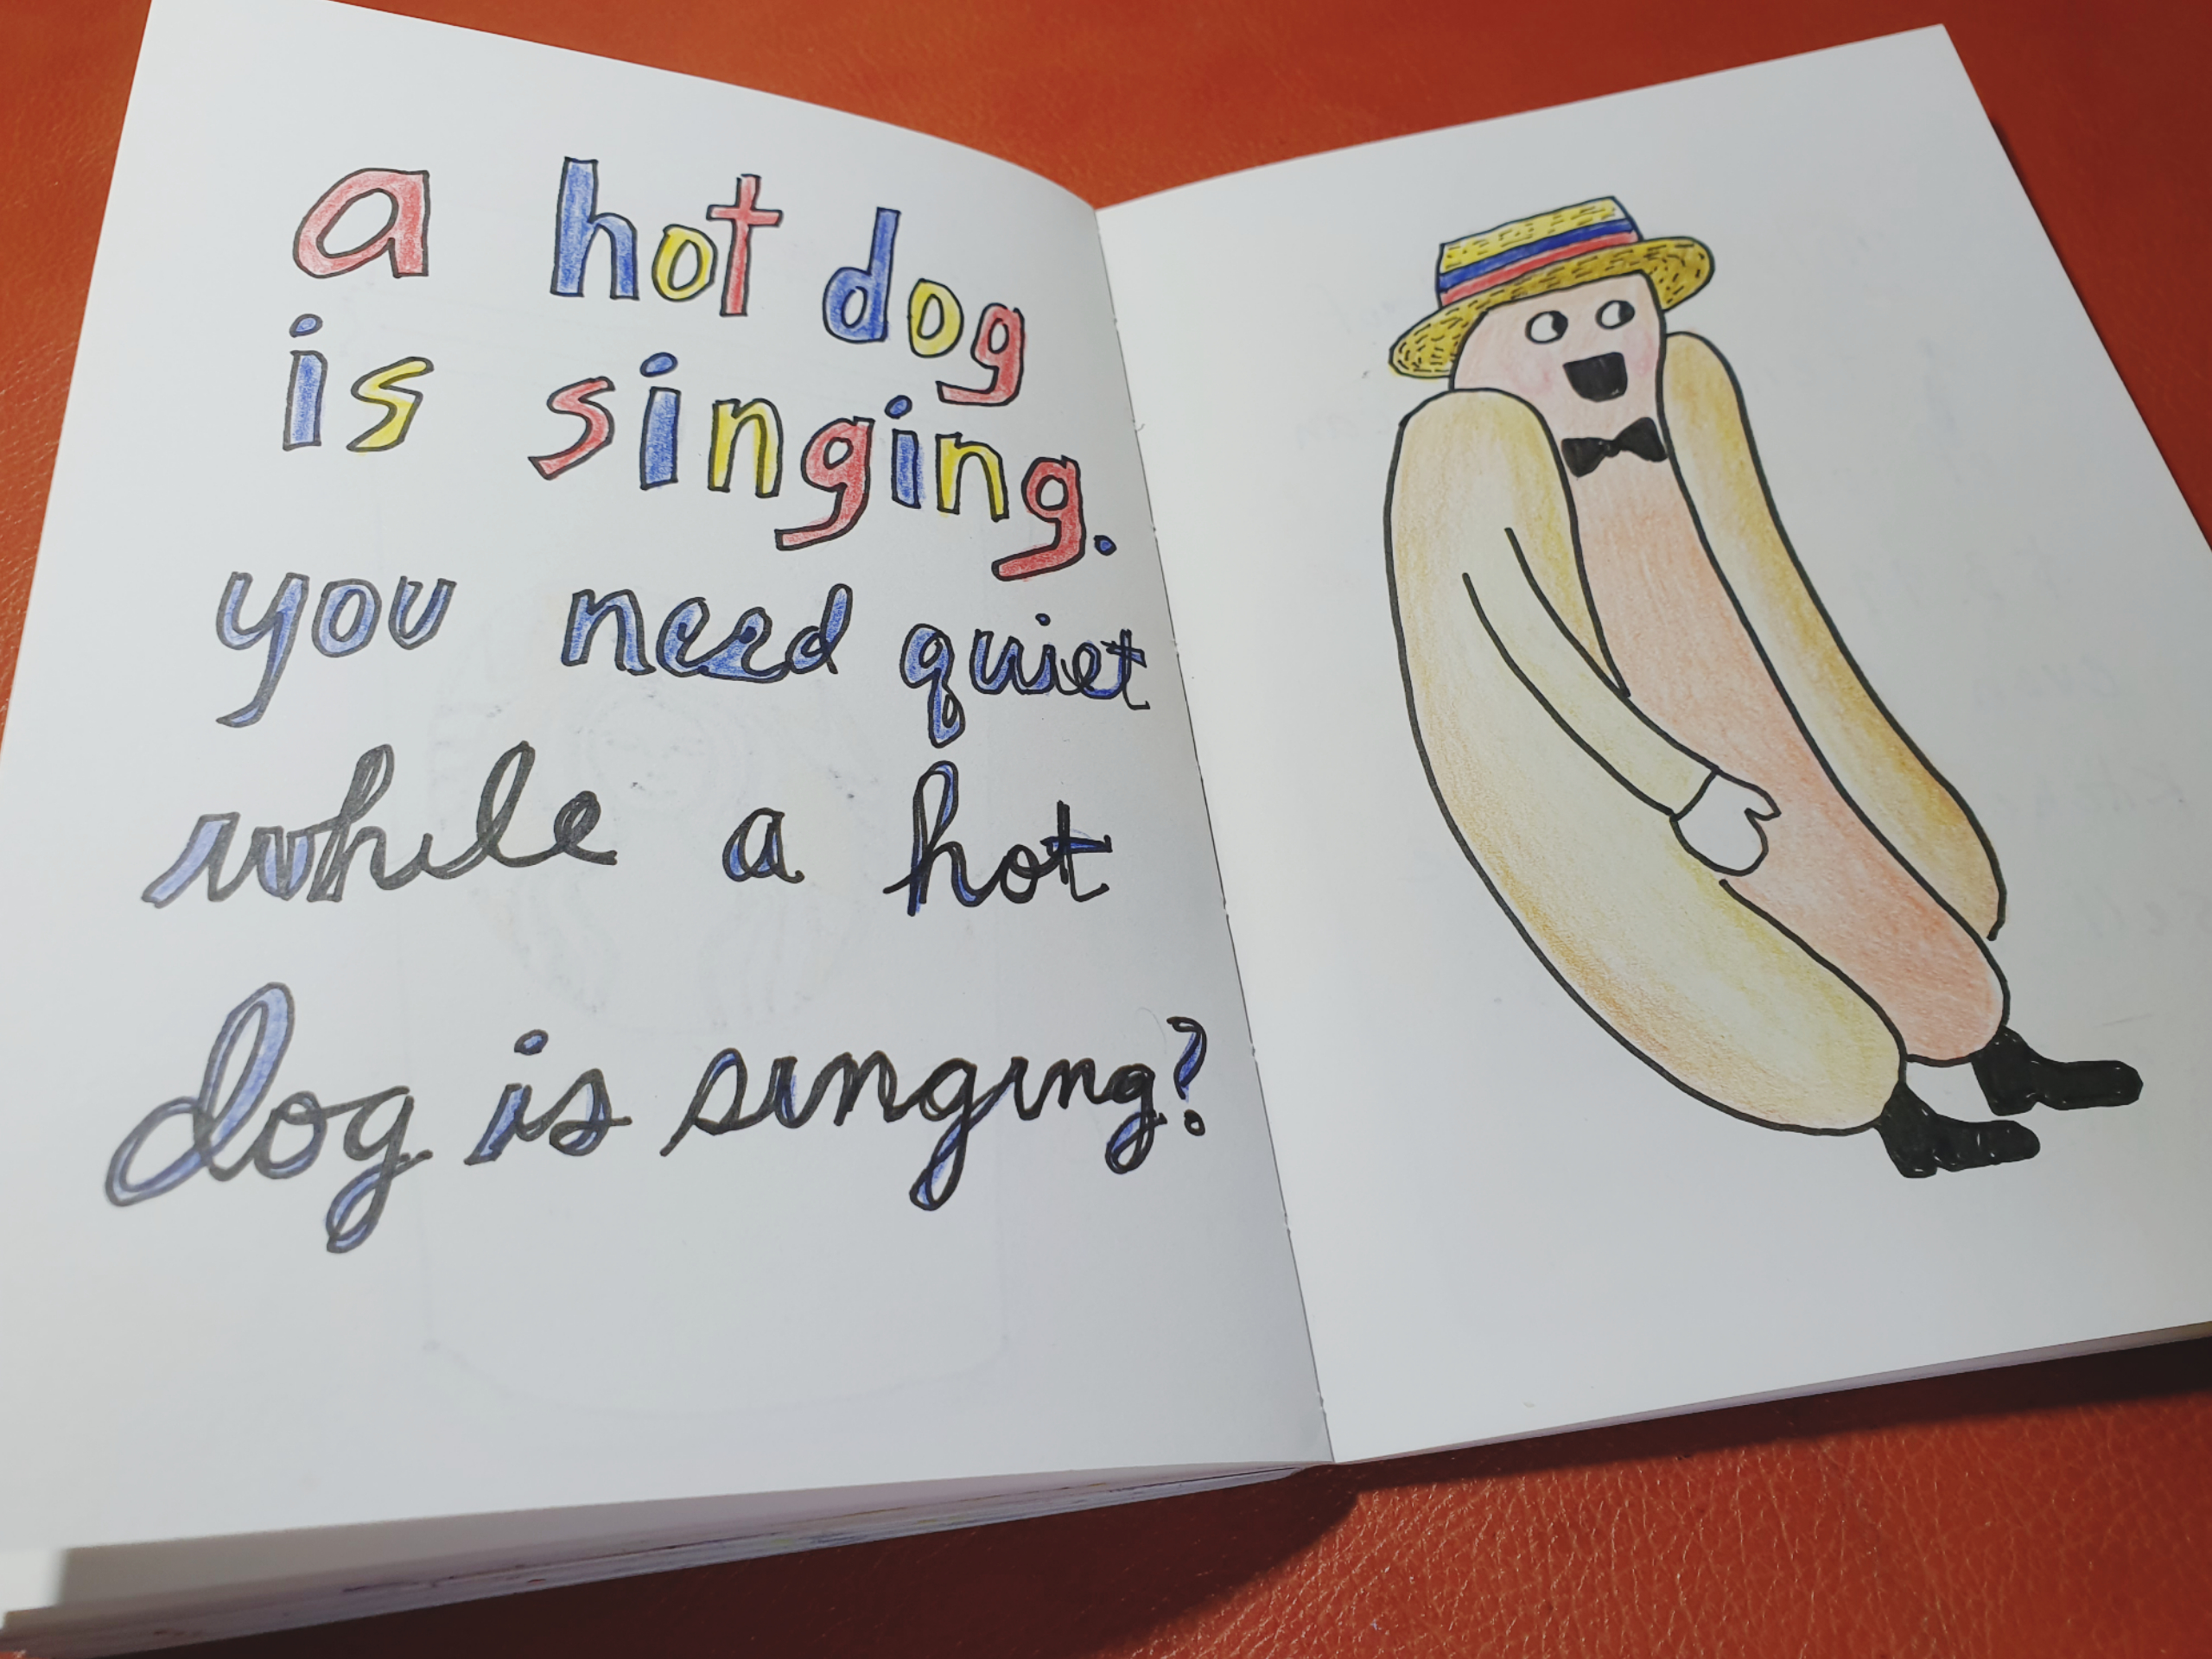 a hot dog
is singing.
you need quiet
while a hot
dog is singing?